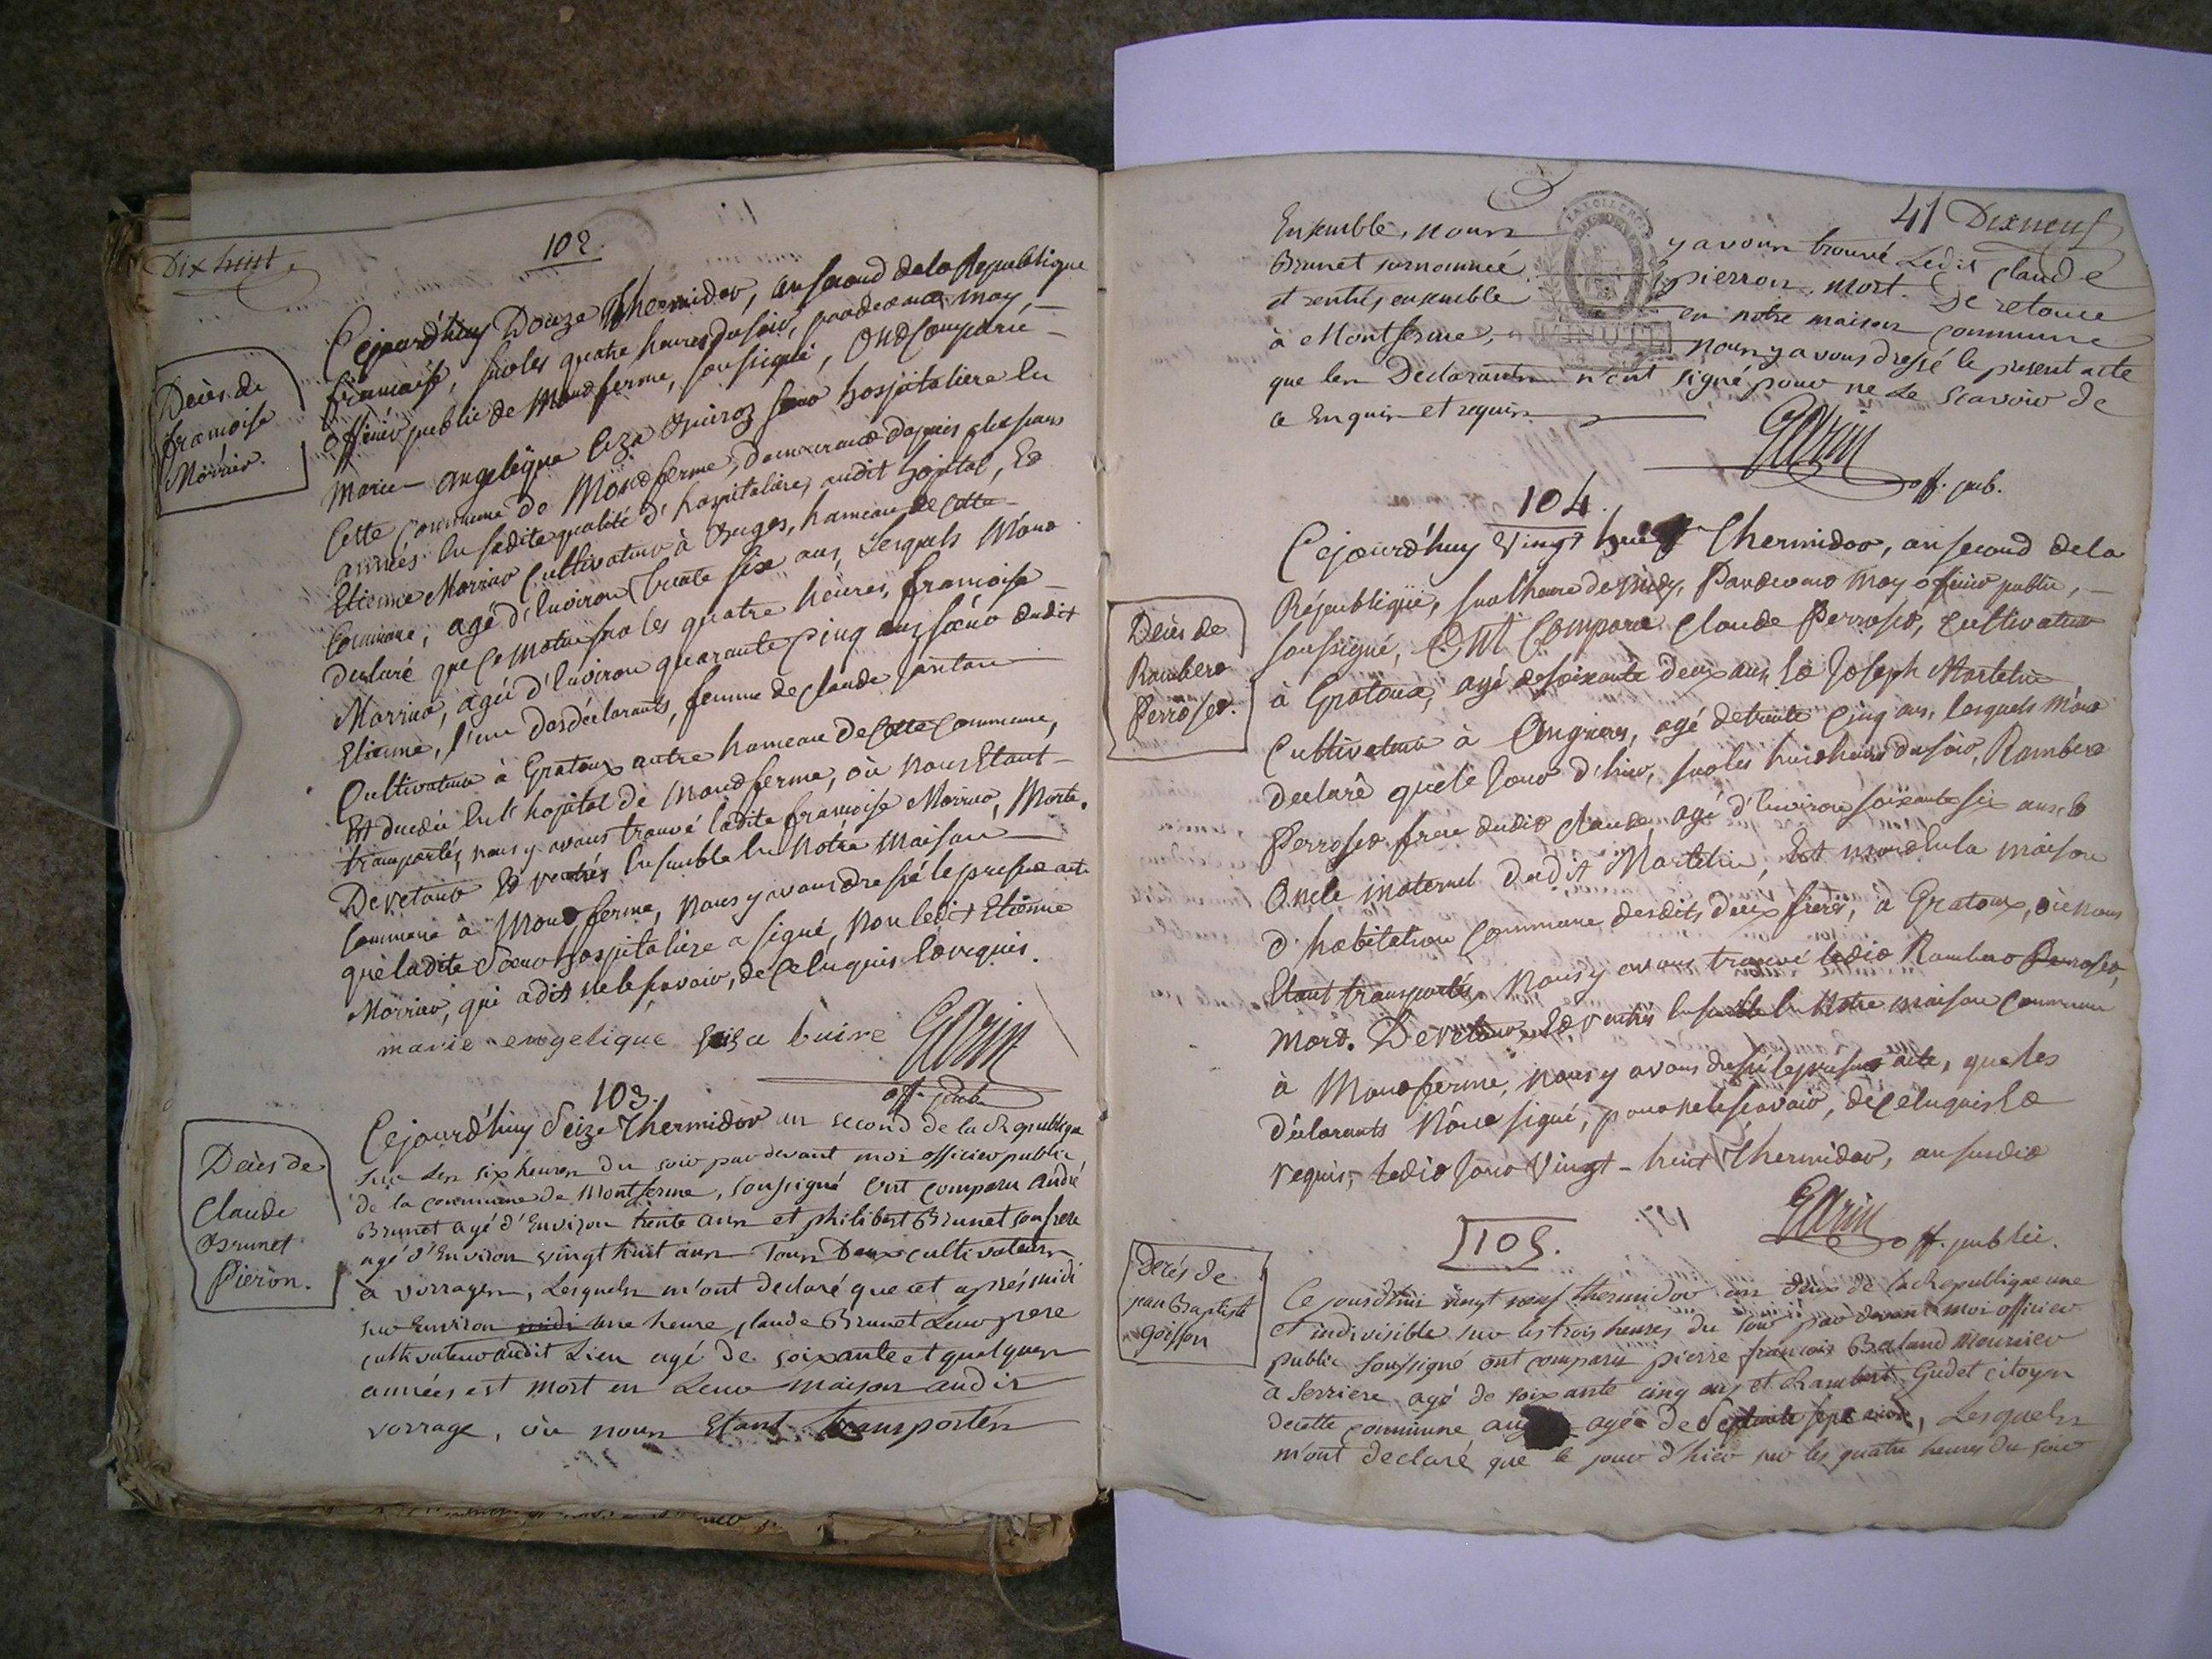 Dix huit
102.
Decès de
francoise
Morrier.
Cejourd'huy Douze Thermidor, an second dela Republique
francaise, sur les quatre heures du soir, pardevant moy,
officier public de Montferme, soussigné, Ont Comparu
Marie angelique Liza Buiroz sœur hospitaliere En
Cette Commune de Montferme, demeurant depuis plusieurs
années En sadite qualité d'hospitaliere, audit hopital, Et
Etienne Morrier Cultivateur à Buges, hameau de Cette
Commune, agé d'Environ trente six ans, Lesquels M'ont
declaré que Ce matin sur les quatre heures, francoise
Morrier, agée d'Environ quarante Cinq ans, sœur dudit
Etienne, l'un des déclarants, femme de Claude
Cultivateur à Gratoux autre hameau de Cette Commune,
Est decedée En l'hopital de Montferme, où nous Etant
transportés, nous y avons trouvé ladite francoise Morrier, Morte.
De retour Et rentrés Ensemble En Notre Maison
Commune à Montferme, Nous y avons dressé le present acte
que ladite Sœur hospitaliere a signé, Non ledit Etienne
Morrier, qui a dit ne le scavoir, de Ce Enquis Et requis.
marie engelique buire Garin
off. pub.
103.
Decès de
Claude
Brunet
Pieron.
Cejourd'huy Seize Thermidor an second de la Republique
sur les six heures du soir par devant moi officier public
de la commune de Montferme, soussigné ont comparu André
Brunet agé d'Environ trente ans et philibert Brunet son frere
agé d'Environ vingt huit ans Tous Deux cultivateurs
à vorrages, Lesquels m'ont declaré que cet aprés midi
sur Environ midi une heure, claude Brunet Leur pere
cultivateur audit Lieu agé de soixante et quelques
années est mort en Leur maison audit
vorrage, où nous Etant transportés
41 Dixneuf
Ensemble, nous y avons trouvé Ledit claude
Brunet surnommé pierron, mort. De retour
et rentrés ensemble en notre maison commune
à Montferme, nous y avons dressé le present acte
que les Declarants n'ont signé pour ne Le scavoir de
ce Enquis et requis.
MINUTE
Garin
off. pub.
104.
Decès de
Rambert
Perroset.
Cejourd'huy Vingt huit Thermidor, an second dela
République, sur l'heure de midy, Pardevant Moy officier public,
soussigné, Ont Comparu Claude Perroset, Cultivateur
à Gratoux, agé de soixante deux ans, Et Joseph Martelin
Cultivateur à Angrieres, agé de trente Cinq ans, lesquels M'ont
declaré que le Jour d'hier, sur les huit heures du soir, Rambert
Perroset frere dudit Claude, agé d'Environ soixante six ans, Et
Oncle maternel dudit Martelin, Est mort En la maison
d'habitation Commune desdits deux freres, à Gratoux, où nous
Etant transportés, Nous y avons trouvé ledit Rambert Perroset,
Mort. De retour Et rentrés Ensemble En Notre maison Commune
à Montferme, Nous y avons dressé le present acte, que les
déclarants N'ont signé, pour ne le scavoir, de Ce Enquis Et
requis, ledit Jour Vingt-huit Thermidor, an susdit
Garin
off. public.
105.
Decés de
jean Baptiste
goiffon
Ce jourdhui vingt neuf thermidor an deux de la Republique une
et indivisible sur les trois heures du soir par devant moi officier
public soussigné ont comparu pierre francois Baland Meunier
à Serriere agé de soixante cinq ans et Rambert Gudet citoyen
de cette commune agé de Septante sept ans, Lesquels
m'ont declaré que le jour d'hier sur les quatre heures du soir